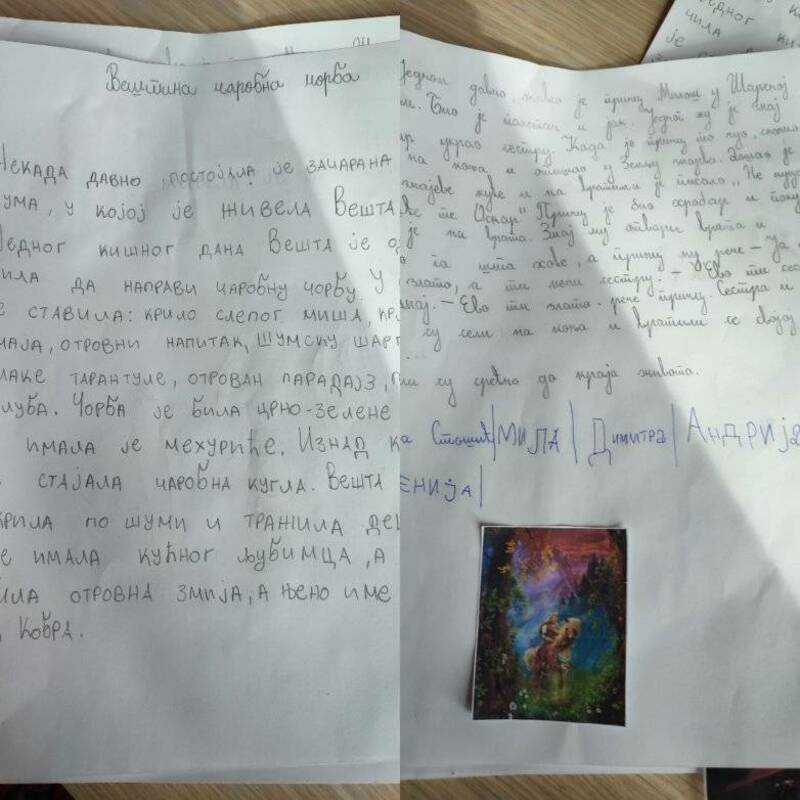 Вештина чаробна чорба
Некада давно, постојла је зачарана
ума, у којој је живела Вешта
Једног кишног дана Вешта је од
чила да направи чаробну чорбу. У
е ставила: крило слепог миша, кр
маја, отровни напитак, шумску шарг
лаке тарантуле, отрован парадајз,
луба. Чорба је била црно-зелене
имала је мехуриће. Изнад к
стајала чаробна кугла. Вешта
крила по шуми и тражила де
е имала кућног љубимца, а
ила отровна змија, а њено име
Кобра.
једног к
чила
је
Једном давно, живео је принц Милош у Шареној
м. Био је паметан и јак. Једног му је змај
украо сестру. Када је принц то чуо,
на коња и отишао у Земљу змајева. Дошао је
змајеве куће и на вратима је писало „Не
ће те Оскар" Принц је био храбар и
је на врата. Змај му отвори врата и
га шта хоће, а принц му рече - Ја
злато, а ти мени сестру. - Ево ти сес
змај. - Ево ти злато. рече принц. Сестра и
су сели на коња и вратили се својој
су срећно до краја живота.
ка Стошић | Мила | Димитра | Андрија
енија |